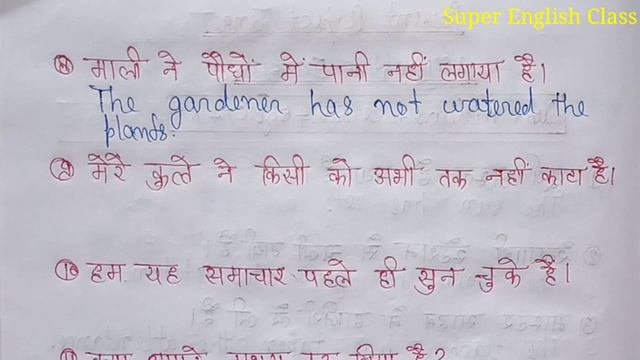 Super English Class
माली ने पौधों में पानी नहीं लगाया है।
The gardener has not watered the
plants.
मेरे कुत्ते ने किसी को अभी तक नहीं काटा है।
10 हम यह समाचार पहले ही सुन चुके है।